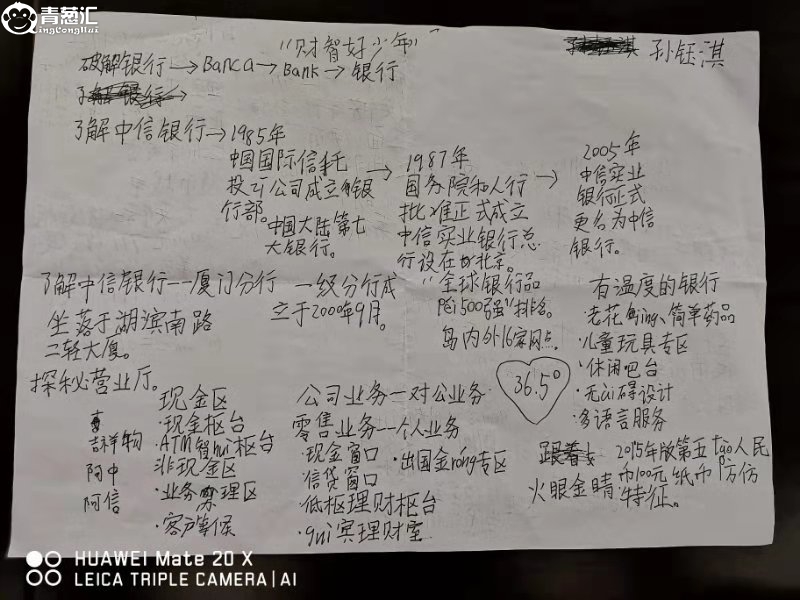 青葱汇
QingCongHui
"财智好少年"
孙钰淇
破解银行→Banca→Bank→银行
了解中信银行→1985年
中国国际信托
投资公司成立银
行部。
中国大陆第七
大银行。
→1987年
国务院和人行
批准正式成立
中信实业银行总
行设在北京。
→2005年
中信实业
银行正式
更名为中信
银行。
了解中信银行—厦门分行
坐落于湖滨南路
二轻大厦。
一级分行成
立于2000年9月。
"全球银行品
pái500强"排名。
岛内外16家网点。
36.5°
有温度的银行
·老花jing、简单药品
·儿童玩具专区
·休闲吧台
·无ài碍设计
·多语言服务
探秘营业厅。
吉祥物
阿中
阿信
现金区
·现金柜台
·ATM智hui柜台
非现金区
·业务办理区
·客户等候
公司业务—对公业务
零售业务—个人业务
·现金窗口
·出国金róng专区
信贷窗口
·低柜理财柜台
·gui宾理财室
火眼金睛
2015年版第五tào人民
币100元纸币防伪
特征。
HUAWEI Mate 20 X
LEICA TRIPLE CAMERA | AI